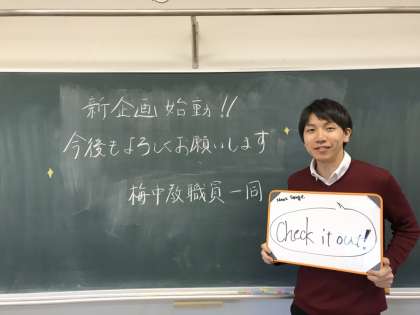 新企画始動!!
今後もよろしくお願いします
梅中教職員一同
Check it out!